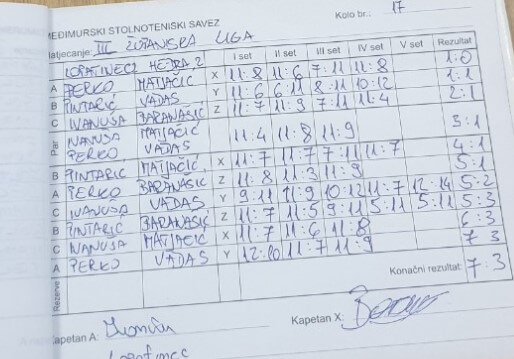 MEĐIMURSKI STOLNOTENISKI SAVEZ
Kolo br.: 17
Natjecanje: III ŽUPANIJSKA LIGA
I set II set III set IV set V set Rezultat
LOPATINEC 2
A PERKO MATJAČIĆ X 11:8 11:6 7:11 11:8 1:0
B PINTARIĆ VADAS Y 11:6 6:11 8:11 10:12 1:1
C IVANUŠA BARANAŠIĆ Z 11:7 11:9 7:11 11:4 2:1
IVANUŠA MATJAČIĆ
PERKO VADAS 11:4 11:8 11:9 3:1
B PINTARIĆ MATJAČIĆ X 11:7 11:7 7:11 11:7 4:1
A PERKO BARANAŠIĆ Z 11:8 11:3 11:9 5:1
C IVANUŠA VADAS Y 9:11 11:9 10:12 11:7 12:14 5:2
B PINTARIĆ BARANAŠIĆ Z 11:7 11:5 9:11 5:11 5:11 5:3
C IVANUŠA MATJAČIĆ X 11:7 11:6 11:8 6:3
A PERKO VADAS Y 12:10 11:7 11:9 7:3
Rezerve
Konačni rezultat: 7:3
Kapetan A:
Kapetan X: